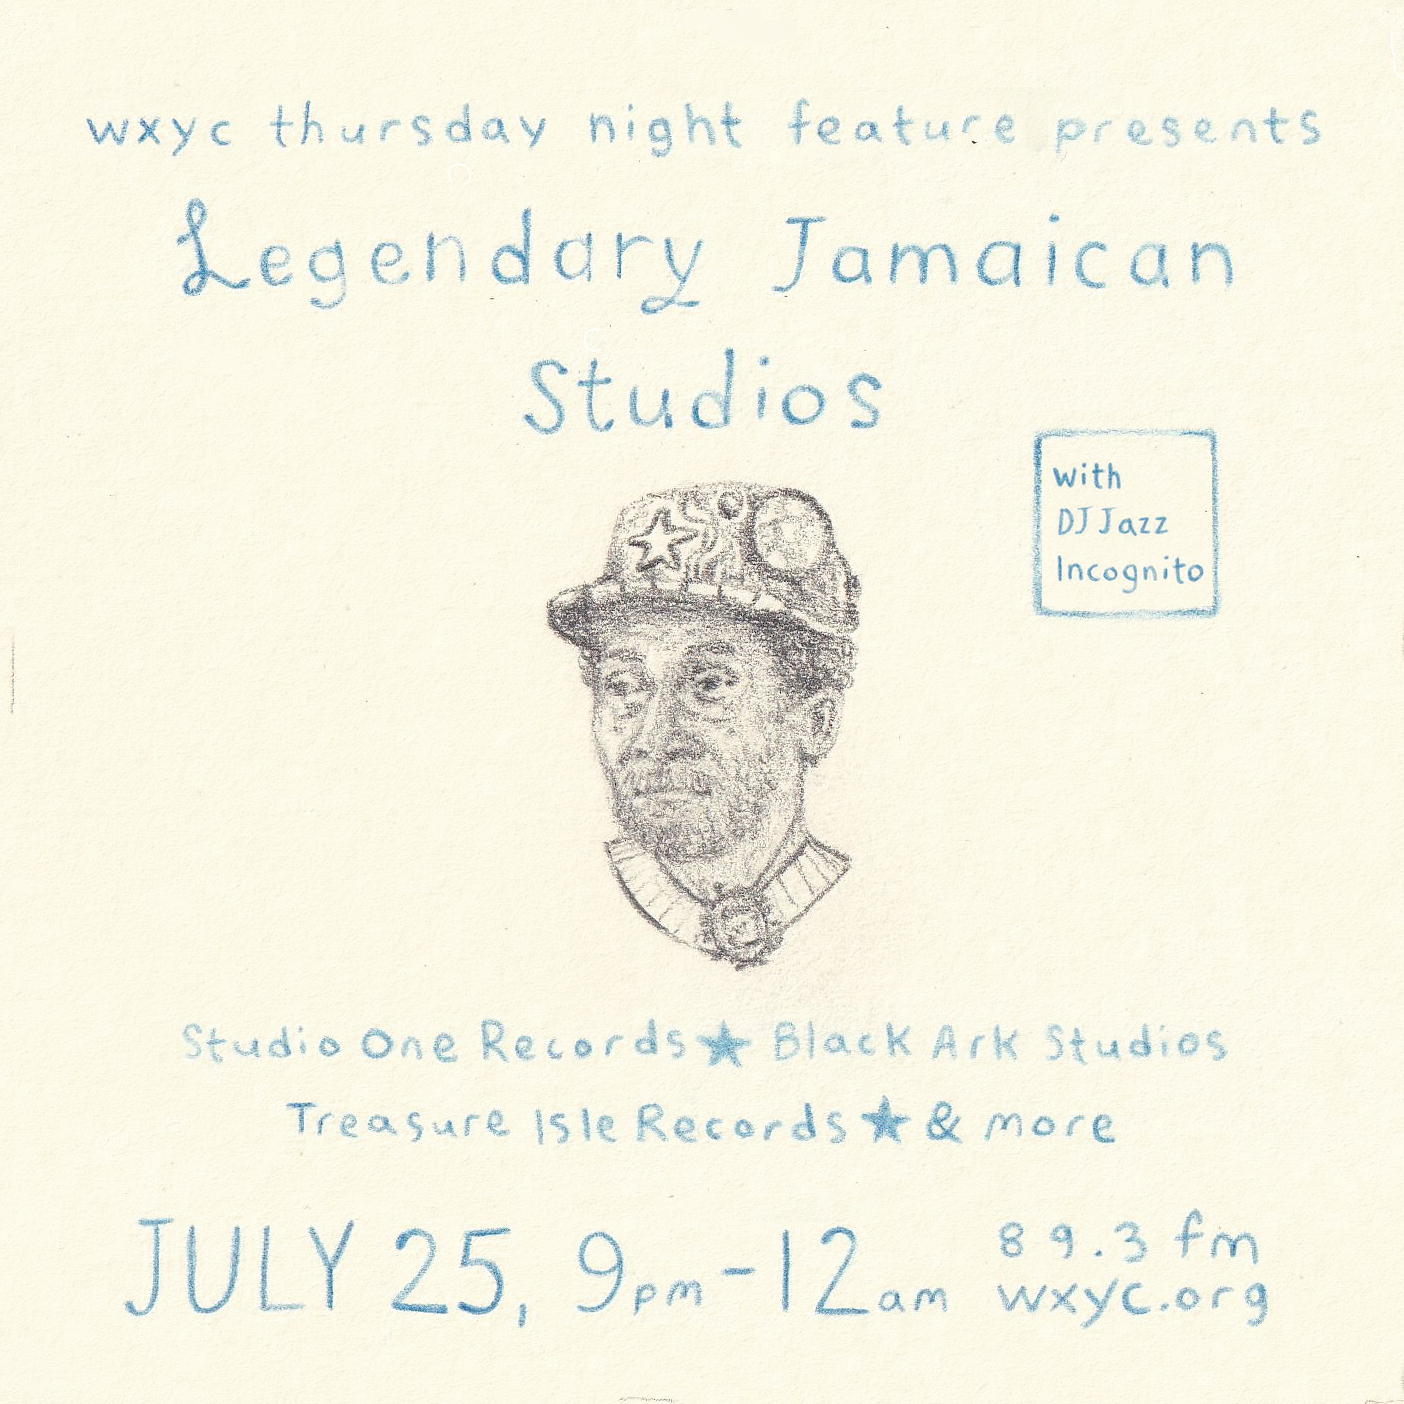 wxyc thursday night feature presents
Legendary Jamaican
Studios
with
DJ Jazz
Incognito
Studio One Records ★ Black Ark Studios
Treasure Isle Records ★ & more
JULY 25, 9pm-12am
89.3 fm
wxyc.org